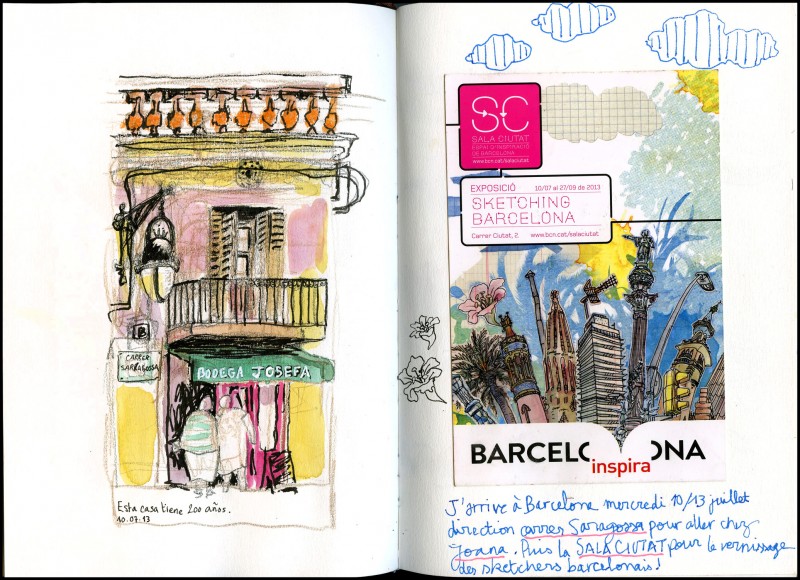 B
CARRER
SARAGOSSA
BODEGA JOSEFA
Esta casa tiene 200 años.
10.07.13
SC
SALA CIUTAT
ESPAI D'INSPIRACIÓ
DE BARCELONA
www.bcn.cat/salaciutat
EXPOSICIÓ 10/07 al 27/09 de 2013
SKETCHING
BARCELONA
Carrer Ciutat, 2 www.bcn.cat/salaciutat
BARCELONA
inspira
J'arrive à Barcelona mercredi 10/13 juillet
direction carrer Saragossa pour aller chez
Joana. Puis la SALA CIUTAT pour le vernissage
des sketchers barcelonais!